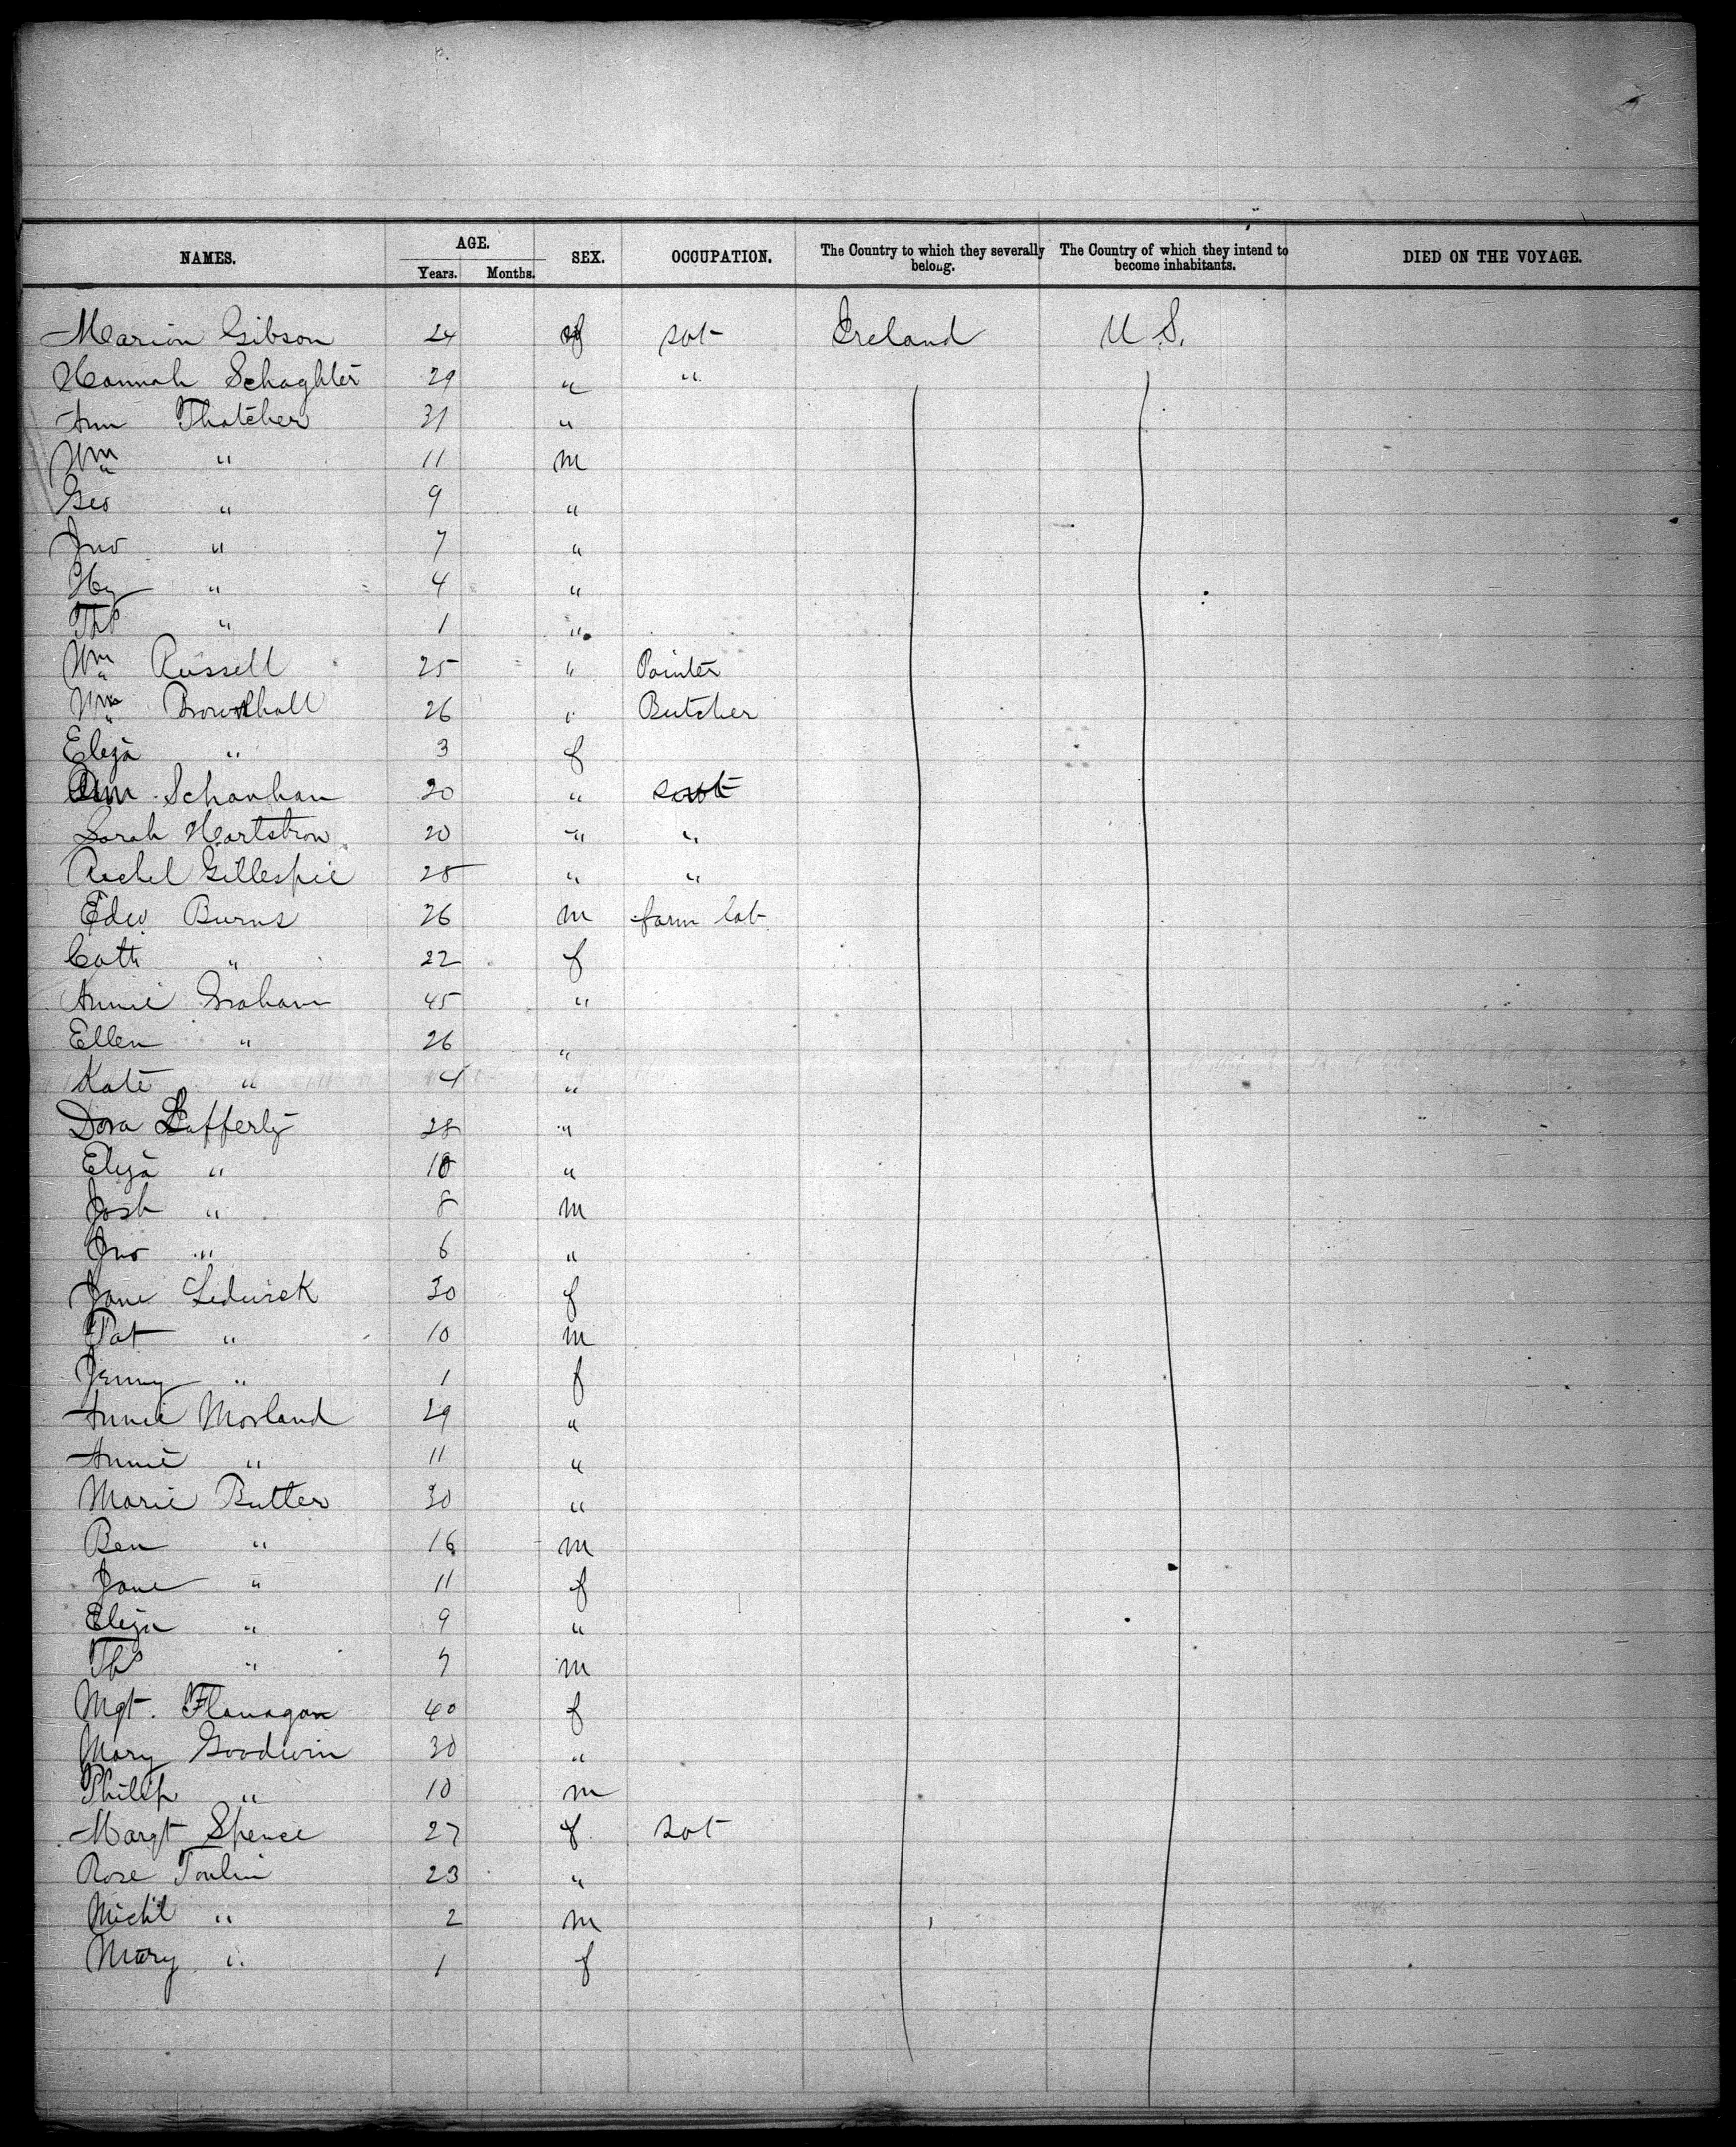 NAMES. AGE. SEX. OCCUPATION. The Country to which they severally belong. The Country of which they intend to become inhabitants. DIED ON THE VOYAGE.
Years. Months.
Marion Gibson 24 f Ireland U S.
Hannah Schaghter 29 " "
Ann Thatcher 31 "
Wm " 11 m
Geo " 9 "
Jno " 7 "
Hy " 4 "
Ths " 1 "
Wm Russell 25 " Painter
Wm Brownhall 26 " Butcher
Eliza " 3 f
Ann Schanhan 20 "
Sarah Hartstron 20 " "
Rachel Gillespie 25 " "
Edw. Burns 26 m farm lab
Cath " 22 f
Annie Graham 45 "
Ellen " 26 "
Kate " 4 "
Dora Lafferty 28 "
Eliza " 10 "
Josh " 8 m
Jno " 6 "
Jane Ledwick 30 f
Pat " 10 m
Jenny " 1 f
Annie Morland 29 "
Annie " 11 "
Marie Butter 30 "
Ben " 16 m
Jane " 11 f
Eliza " 9 "
Ths " 7 m
Mgt. Flanagan 40 f
Mary Goodwin 30 "
Philip " 10 m
Margt Spence 27 f
Rose 23 "
Michl " 2 m
Mary " 1 f